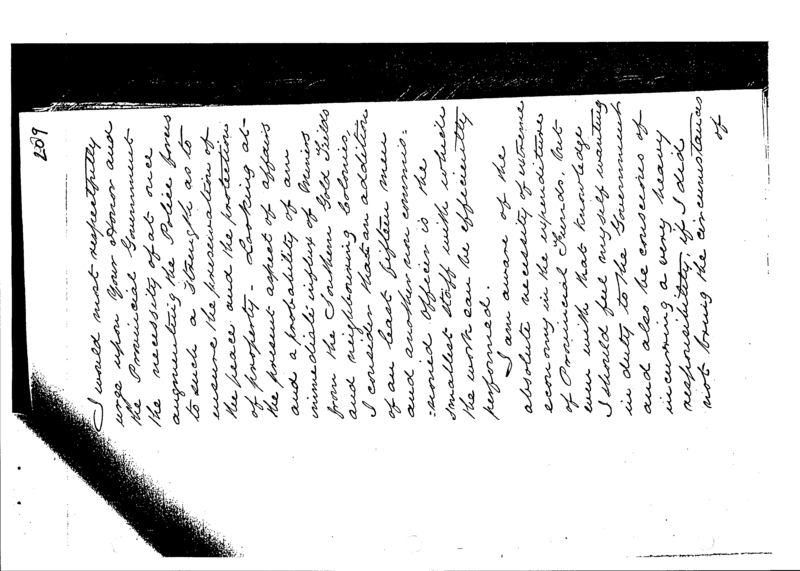 209
I would most respectfully
urge upon Your Honor and
the Provincial Government
the necessity of at once
augmenting the Police force
to such a strength as to
ensure the preservation of
the peace and the protection
of property. Looking at
the present aspect of affairs
and a probability of an
immediate influx of Miners
from the Southern Gold Fields
and neighbouring Colonies,
I consider that an addition
of at least fifteen men
and another non commis:
:sioned Officer is the
smallest staff with which
the work can be efficiently
performed.
I am aware of the
absolute necessity of extreme
economy in the expenditure
of Provincial Funds, but
even with that knowledge
I should feel myself wanting
in duty to the Government
and also be conscious of
incurring a very heavy
responsibility if I did
not bring the circumstances
of